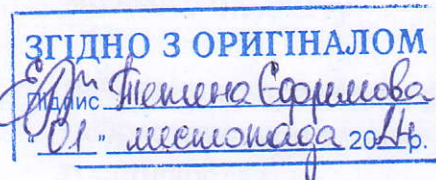 ЗГІДНО З ОРИГІНАЛОМ
Підпис Тетяна Єфремова
"01" листопада 2024р.